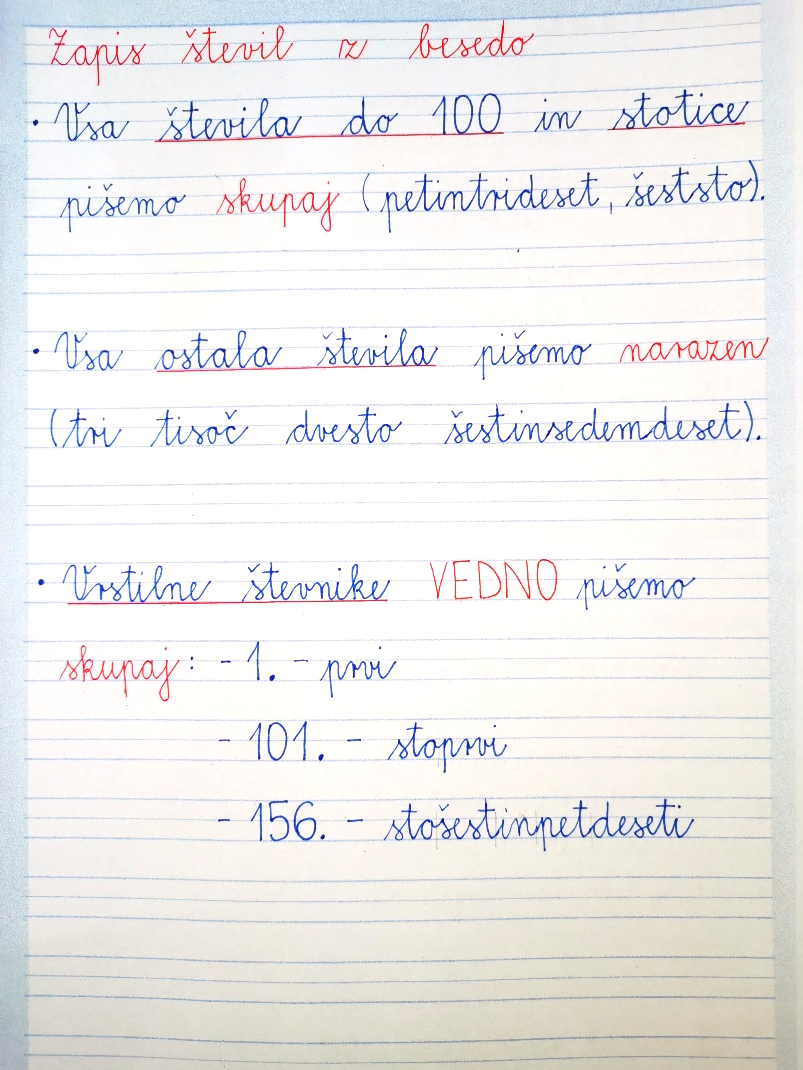 Zapis števil z besedo
• Vsa števila do 100 in stotice
pišemo skupaj (petintrideset, šeststo).
• Vsa ostala števila pišemo narazen
(tri tisoč dvesto šestinsedemdeset).
• Vrstilne števnike VEDNO pišemo
skupaj: - 1. - prvi
- 101. - stoprvi
- 156. - stošestinpetdeseti